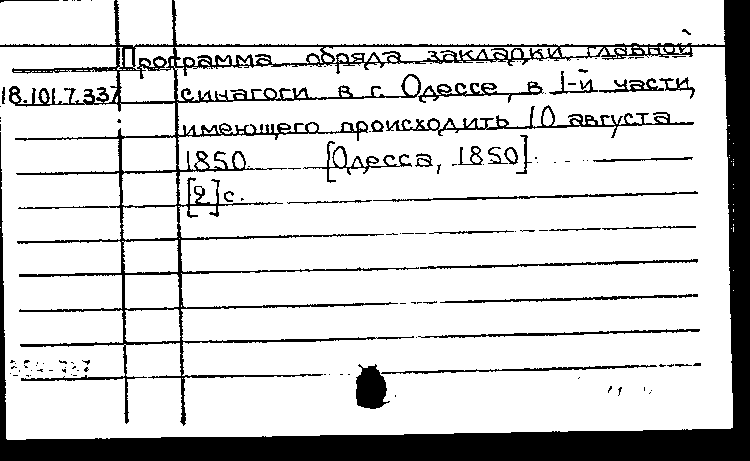 Программа обряда закладки главной
18.101.7.337 синагоги в г. Одессе, в 1-й части,
имеющего происходить 10 августа
1850 [Одесса, 1850].
[2] с.